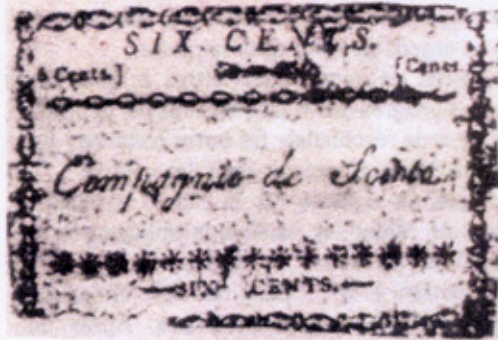 SIX CENTS.
6 Cents.] [Cents
Compagnie de Scioto
SIX CENTS.